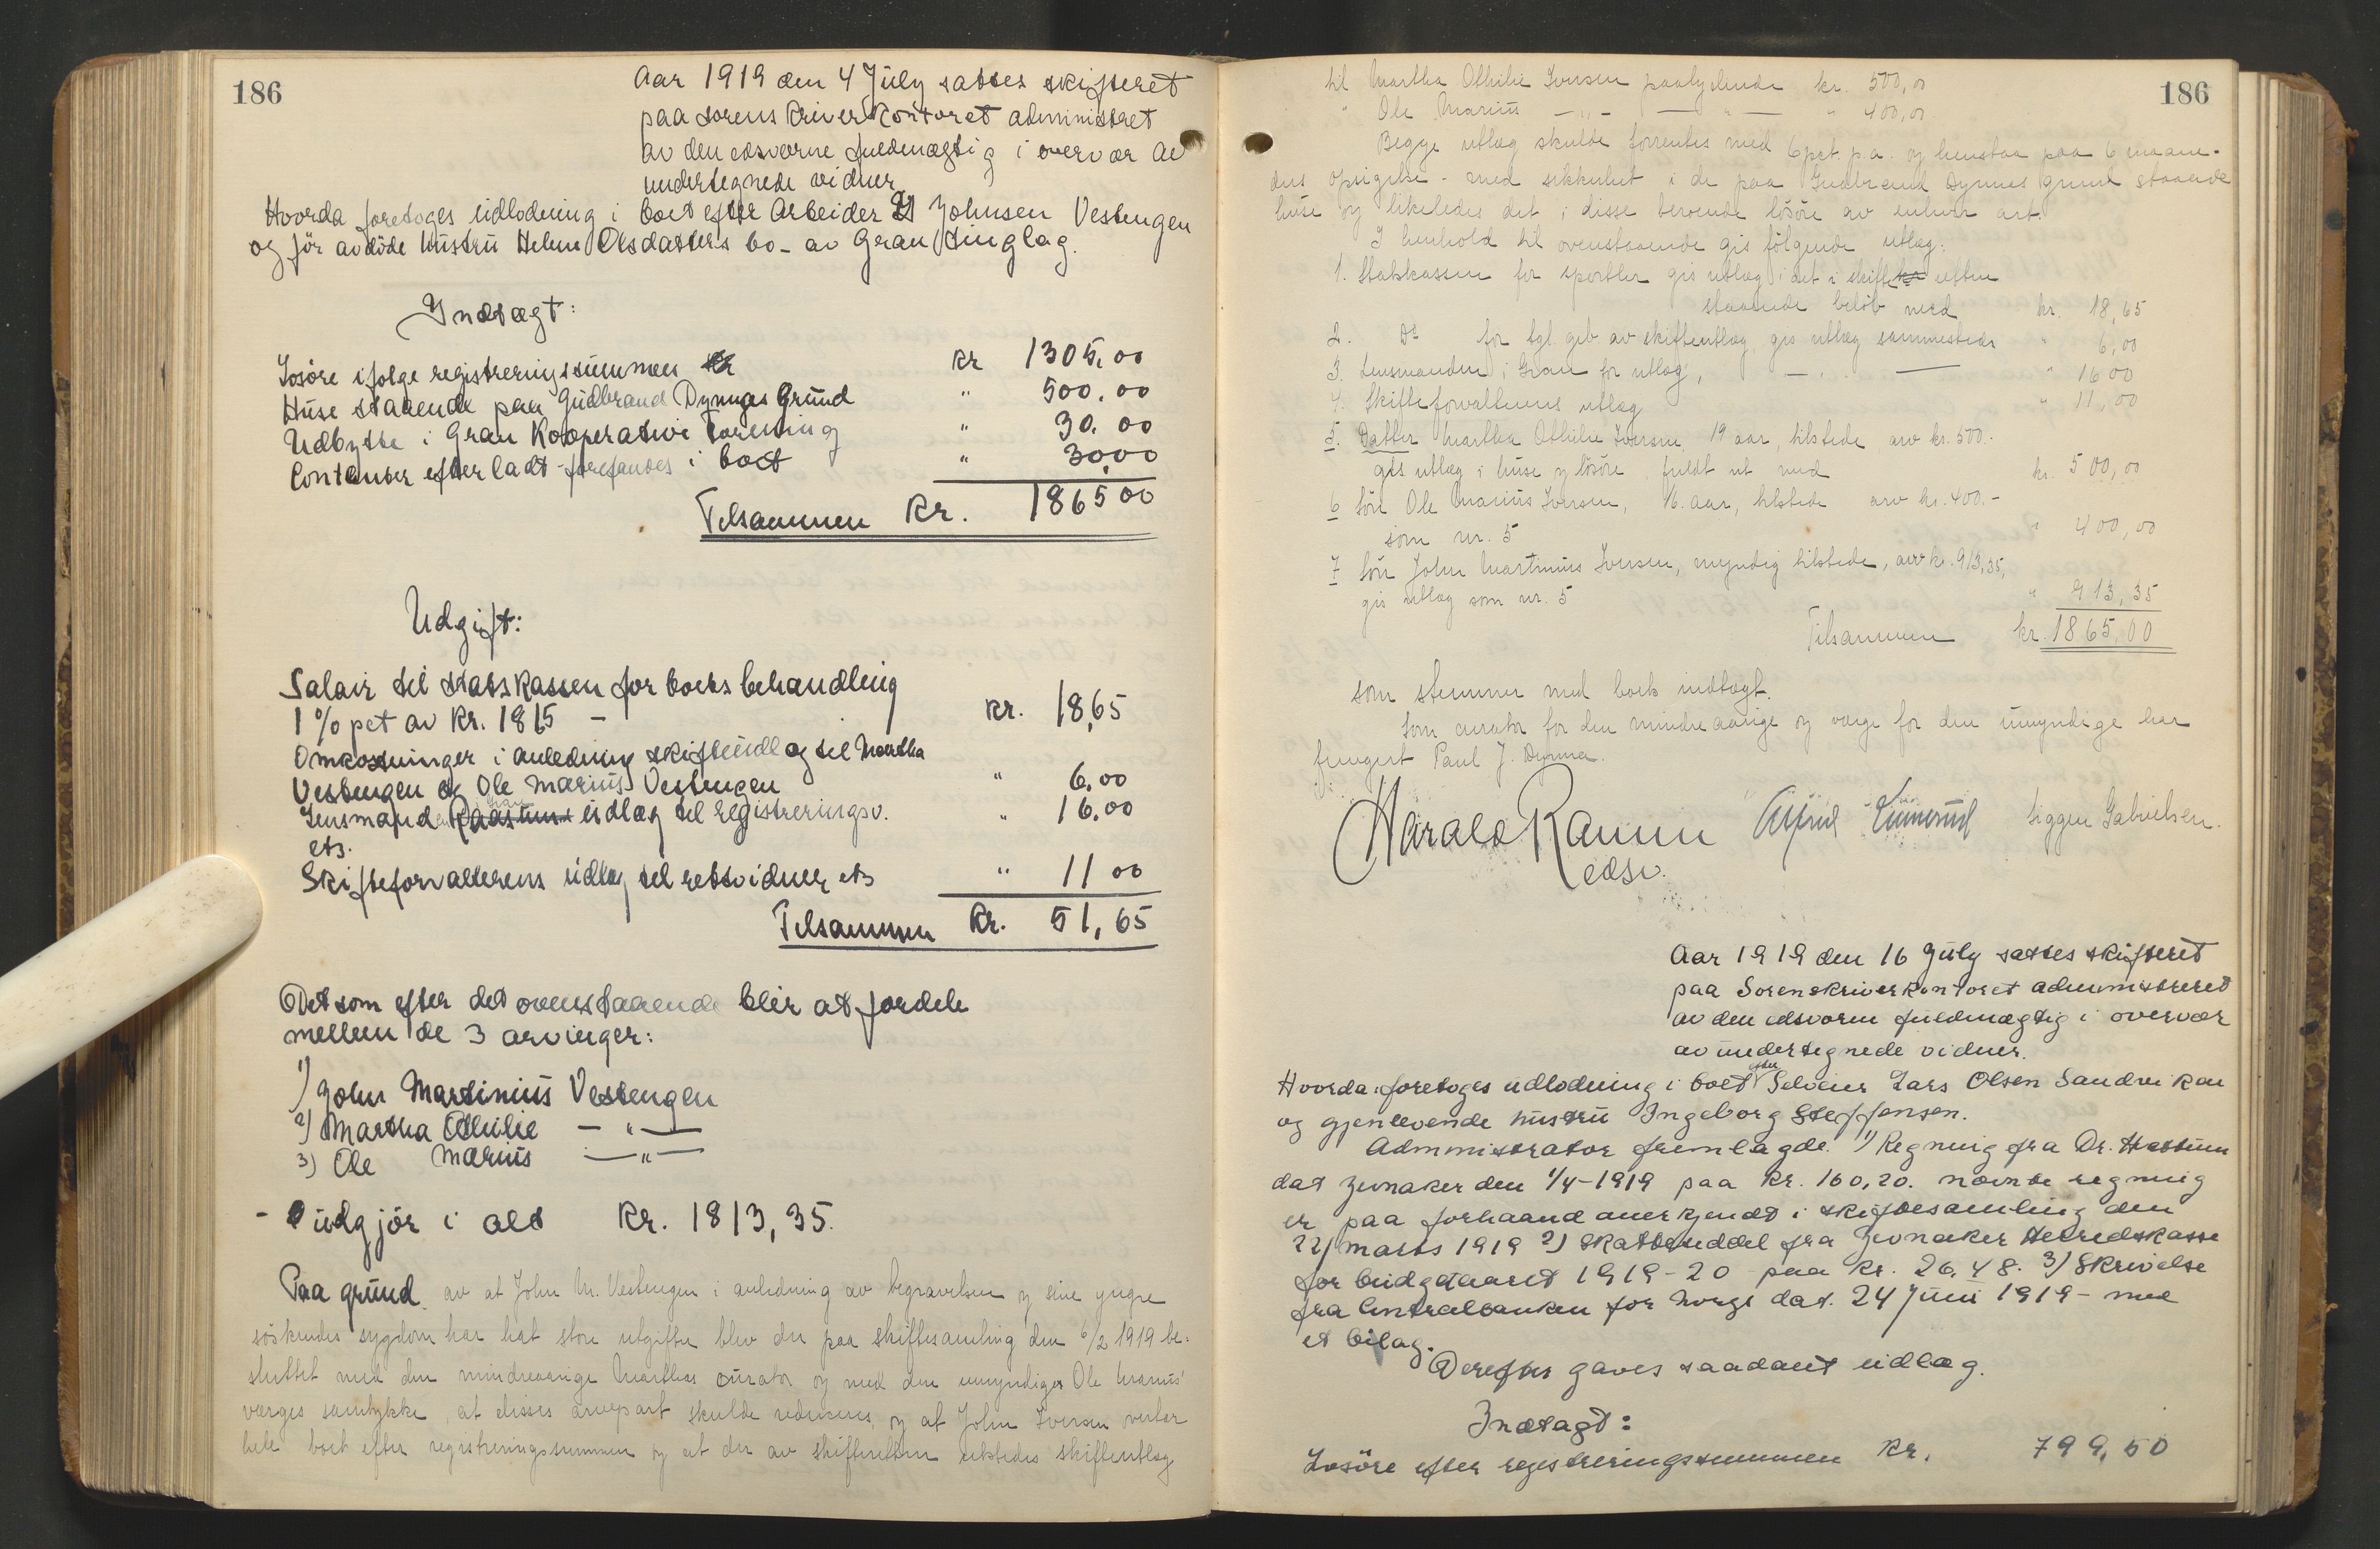 186
Aar 1919 den 4 July sattes skifteret
paa sorenskriverkontoret administret
av den edsvorne fuldmægtig i overvær av
undertegnede vidner
Hvorda foretoges udlodning i boet efter Arbeider Johnsen Vestengen
og før avdöde hustru Helene Olsdatters bo - av Gran tinglag.
Indtægt:
Losöre ifolge registreringssummen kr 1305,00
Huse staaende paa Gudbrand Dynnas Grund " 500.00
Udbytte i Gran Kooperative Forening " 30.00
Contanter efterladt forefandes i boet " 30,00
Tilsammen Kr. 1865,00
Udgift:
Salair til statskassen for boets behandling
1 % pct av Kr. 1815 - kr. 18,65
Omkostninger i anledning skifteudlæg til Martha
Vestengen og Ole Marius Vestengen " 6,00
Lensmand udlæg til registreringsv. " 16.00
ets.
Skifteforvalterens udlæg til retsvidner ets " 11 00
Tilsammen Kr. 51,65
Det som efter det ovenstaaende blir at fordele
mellem de 3 arvinger:
1) John Martinius Vestengen
2) Martha Othilie — " —
3) Ole Marius — " —
- udgjör i alt Kr. 1813,35.
Paa grund av at John M. Vestengen i anledning av begravelsen og sine yngre
söskendes sygdom har hat store utgifter blev der paa skiftesamling den 6/2 1919 be-
sluttet med den mindreaarige Marthas curator og med den umyndiges Ole Marius'
værges samtykke, at disses arvepart skulde reduceres, og at John Iversen overtar
hele boet efter registreringssummen og at der av skifteretten utstedes skifteutlæg
186
til Martha Othilie Iversen paalydende kr. 500,00
" Ole Marius — " — — " — " 400,00
Begge utlæg skulde forrentes med 6 pct. p.a. og henstaa paa 6 maane-
ders opsigelse - med sikkerhet i de paa Gudbrand Dynnas grund staaende
huse og likeledes det i disse beroende lösöre av enhver art.
I henhold til ovenstaaende gis fölgende utlæg:
1. Statskassen for sportler gis utlæg i det i skifteretten
staaende belöb med kr. 18,65
2. Do for tgl. geb av skifteutlæg gis utlæg sammesteds " 6,00
3. Lensmanden i Gran for utlæg, — . — " 16 00
4. Skifteforvalterens utlæg " 11,00
5. Datter Martha Othilie Iversen, 19 aar, tilstede arv kr. 500.-
gis utlæg i huse og lösöre fuldt ut med kr. 500,00
6 Sön Ole Marius Iversen, 16. aar, tilstede arv kr. 400.-
som nr. 5 " 400,00
7 Sön John Martinius Iversen, myndig tilstede, arv kr. 913,35,
gis utlæg som nr. 5 " 913,35
Tilsammen kr. 1865,00
som stemmer med boets indtægt.
Som curator for den mindreaarige og værge for den umyndige har
fungert Paul J. Dynna.
Harald Ramm
edsv.
Siggen Gabrielsen.
Aar 1919 den 16 July sattes skifteret
paa Sorenskriverkontoret administreret
av den edsvorne fuldmægtig i overvær
av undertegnede vidner.
Hvorda: foretoges udlodning i boet efter Selveier Lars Olsen Sandviken
og gjenlevende hustru Ingeborg Steffensen.
Administrator fremlagde. 1) Regning fra Dr.
dat Jevnaker den 1/4-1919 paa kr. 160,20. nævnte regning
er paa forhaand anerkjendt i skiftesamling den
22/ marts 1919 2) Skatteseddel fra Jevnaker Herredskasse
for budgetaaret 1919-20 paa kr. 26.48. 3) Skrivelse
fra Centralbanken for Norge dat. 24 Juni 1919 - med
et bilag.
Derefter gaves saadant udlæg.
Indtægt:
Losöre efter registreringssummen Kr. 799,50